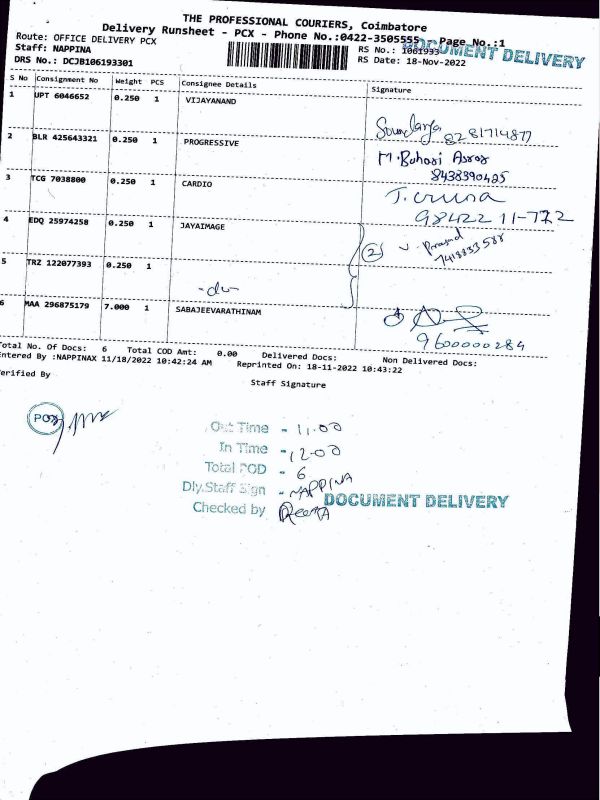 THE PROFESSIONAL COURIERS, Coimbatore
Delivery Runsheet - PCX - Phone No.:0422-3505555 Page No.:1
Route: OFFICE DELIVERY PCX
RS No.: 1061933
DOCUMENT DELIVERY
Staff: NAPPINA
RS Date: 18-Nov-2022
DRS No.: DCJB106193301
S No Consignment No Weight PCS Consignee Details Signature
1 UPT 6046652 0.250 1 VIJAYANAND
Soundarya 8281714877
2 BLR 425643321 0.250 1 PROGRESSIVE
8438390485
3 TCG 7038800 0.250 1 CARDIO
98422 11-772
4 EDQ 25974258 0.250 1 JAYAIMAGE
2
7418833588
5 TRZ 122077393 0.250 1
-do-
6 MAA 296875179 7.000 1 SABAJEEVARATHINAM
9600000284
otal No. Of Docs: 6 Total COD Amt: 0.00 Delivered Docs: Non Delivered Docs:
ntered By :NAPPINAX 11/18/2022 10:42:24 AM Reprinted On: 18-11-2022 10:43:22
erified By
Staff Signature
Out Time - 11.00
In Time - 12.00
Total POD - 6
Dly.Staff Sign - NAPPINA
DOCUMENT DELIVERY
Checked by